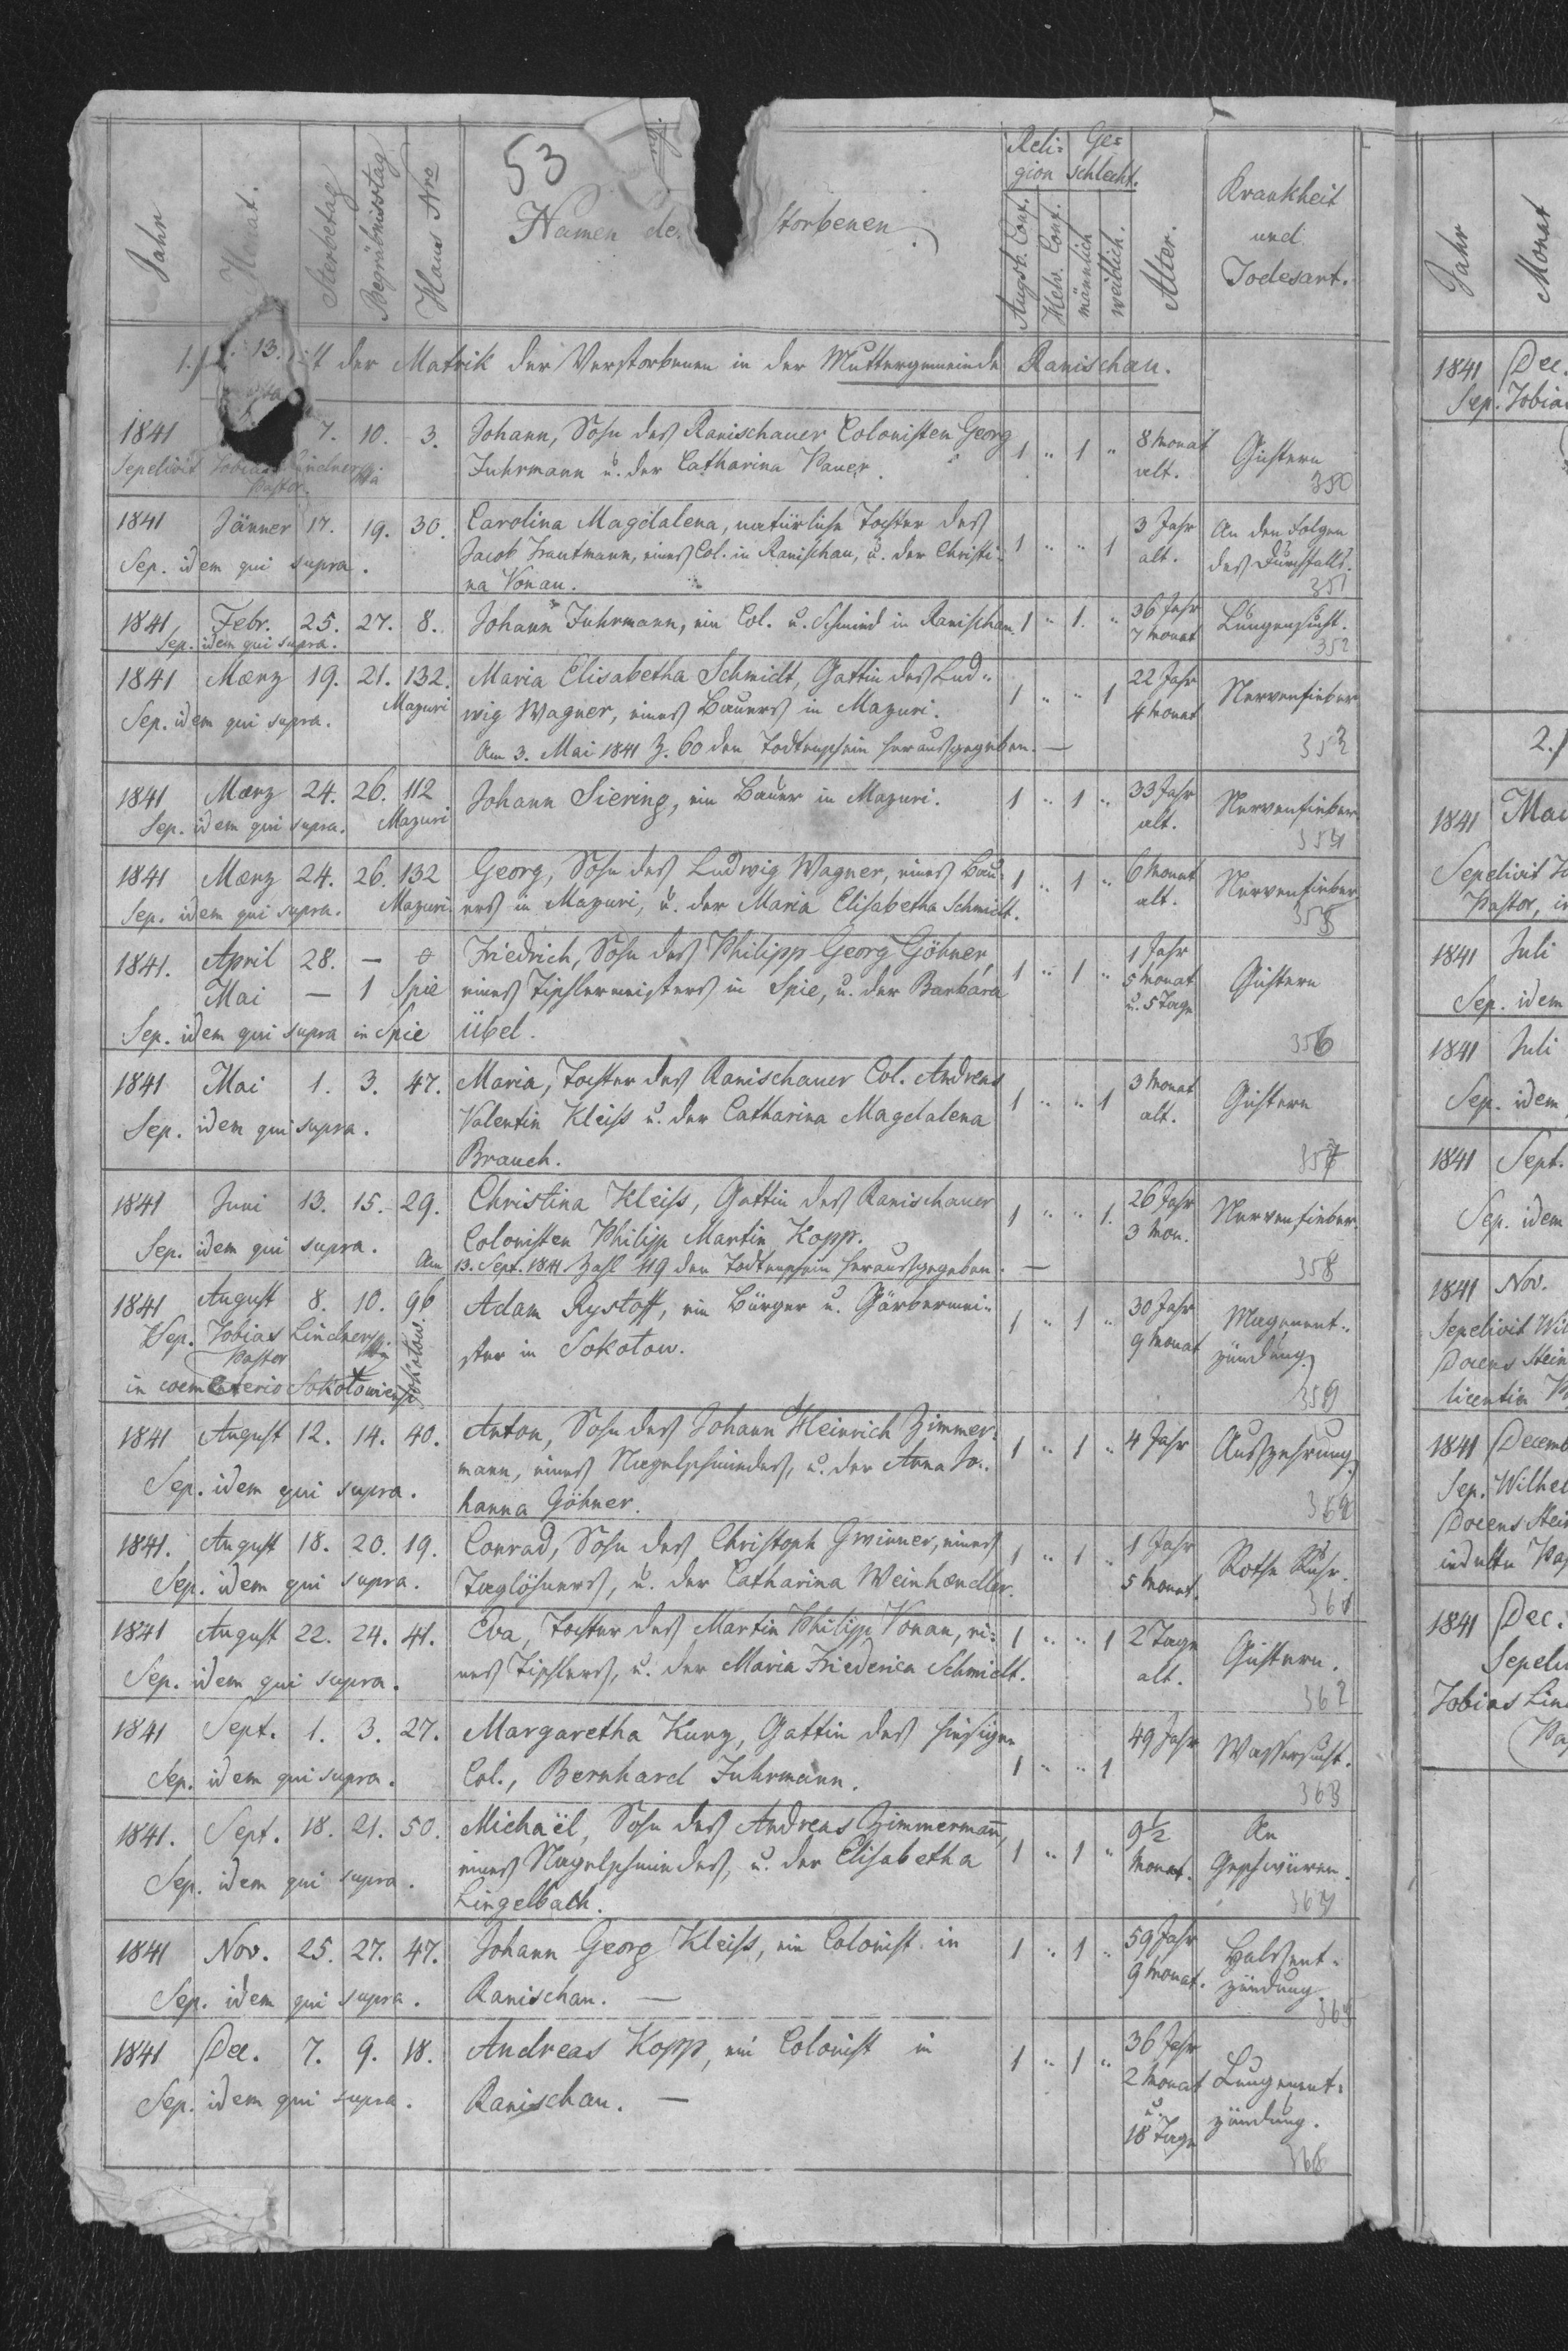 53
Jahr Monat. Sterbetag Begräbnisstag Haus Nro Namen de storbenen. Reli= gion Augsb. Conf. Helv. Conf. Ge= schlecht. männlich weiblich. Alter. Krankheit und Todesart.
1.) 13. der Matrik der Verstorbenen in der Muttergemeinde Ranischau.
1841 7. 10. 3. Johann, Sohn des Ranischauer Colonisten Georg 1 " 1 " 8 Monat Gichtern
Sepelivit Tobias Lindner Fuhrmann u. der Catharina Pauer. alt. 350
Pastor.
1841 Jänner 17. 19. 30. Carolina Magdalena, natürliche Tochter des 3 Jahr An den Folgen
Sep. idem qui supra. Jacob Trautmann, eines Col. in Ranischau, u. der Christi= 1 " " 1 alt. des Durchfalls.
na Vonau. 351
1841 Febr. 25. 27. 8. Johann Fuhrmann, ein Col. u. Schmied in Ranischau. 1 " 1. " 36 Jahr Lungensucht.
Sep. idem qui supra. 7 Monat 352
1841 Mærz 19. 21. 132. Maria Elisabetha Schmidt, Gattin des Lud= 1 " " 1 22 Jahr Nervenfieber
Sep. idem qui supra. Mazuri wig Wagner, eines Bauers in Mazuri. 4 Monat
Am 3. Mai 1841 Z. 60 den Todtenschein herausgegeben. — 353
1841 Mærz 24. 26. 112 Johann Siering, ein Bauer in Mazuri. 1 " 1 " 33 Jahr Nervenfieber
Sep. idem qui supra. Mazuri alt. 354
1841 Mærz 24. 26. 132 Georg, Sohn des Ludwig Wagner, eines Bau= 1 " 1 " 6 Monat Nervenfieber
Sep. idem qui supra. Mazuri ers in Mazuri, u. der Maria Elisabetha Schmidt. alt. 355
1841. April 28. — 0 Friedrich, Sohn des Philipp Georg Göhner, 1 " 1 " 1 Jahr Gichtern
Mai — 1 Spie eines Tischlermeisters in Spie, u. der Barbara 5 Monat
Sep. idem qui supra in Spie Übel. u. 5 Tage 356
1841 Mai 1. 3. 47. Maria, Tochter des Ranischauer Col. Andreas 1 " " 1 3 Monat Gichtern
Sep. idem qui supra. Valentin Kleiss u. der Catharina Magdalena alt.
Brauch. 357
1841 Juni 13. 15. 29. Christina Kleiss, Gattin des Ranischauer 1 " " 1. 26 Jahr Nervenfieber.
Sep. idem qui supra. Colonisten Philipp Martin Kopp. 3 Mon.
Am 13. Sept. 1841 Zahl 119 den Todtenschein herausgegeben. — 358
1841 August 8. 10. 96 Adam Rystoff, ein Bürger u. Gärbermei= 1 " 1 " 30 Jahr Magenent=
Sep. Tobias Lindner Sokołow. ster in Sokołow. 9 Monat zündung.
Pastor
in coemeterio Sokołowiensi 359
1841 August 12. 14. 40. Anton, Sohn des Johann Heinrich Zimmer= 1 " 1 " 4 Jahr Auszehrung.
Sep. idem qui supra. mann, eines Nagelschmiedes, u. der Anna Jo=
hanna Göhner. 360
1841. August 18. 20. 19. Conrad, Sohn des Christoph Gwinner, eines 1 " 1 " 1 Jahr Rothe Ruhr.
Sep. idem qui supra. Taglöhners, u. der Catharina Weinhændler. 5 Monat. 361
1841 August 22. 24. 41. Eva, Tochter des Martin Philipp Vonau, ei= 1 " " 1 2 Tage Gichtern.
Sep. idem qui supra. nes Tischlers, u. der Maria Friederica Schmidt. alt. 362
1841 Sept. 1. 3. 27. Margaretha Kunz, Gattin des hiesigen 49 Jahr Wassersucht.
Sep. idem qui supra. Col., Bernhard Fuhrmann. 1 " " 1 363
1841. Sept. 18. 21. 50. Michaël, Sohn des Andreas Zimmermañ, 1 " 1 " 9½ An
Sep. idem qui supra. eines Nagelschmiedes, u. der Elisabetha Monat. Geschwüren.
Lingelbach. 364
1841 Nov. 25. 27. 47. Johann Georg Kleiss, ein Colonist in 1 " 1 " 59 Jahr Halsent=
Sep. idem qui supra. Ranischau. — 9 Monat. zündung.
1841 Dec. 7. 9. 18. Andreas Kopp, ein Colonist in 1 " 1 " 36 Jahr
Sep. idem qui supra. Ranischau. — 2 Monat Lungenent=
u. zündung.
18 Tage
Jahr Monat
1841 Dec.
Sep. Tobia
2.)
1841 Mai
Sepelivit
Pastor,
1841 Juli
Sep. idem
1841 Juli
Sep. idem
1841 Sept.
Sep. idem
1841 Nov.
Sepelivit Wil
Docens Stein
licentia
1841 Decemb
Sep. Wilhel
Docens Stei
indultu
1841 Dec.
Sepeli
Tobias Lin